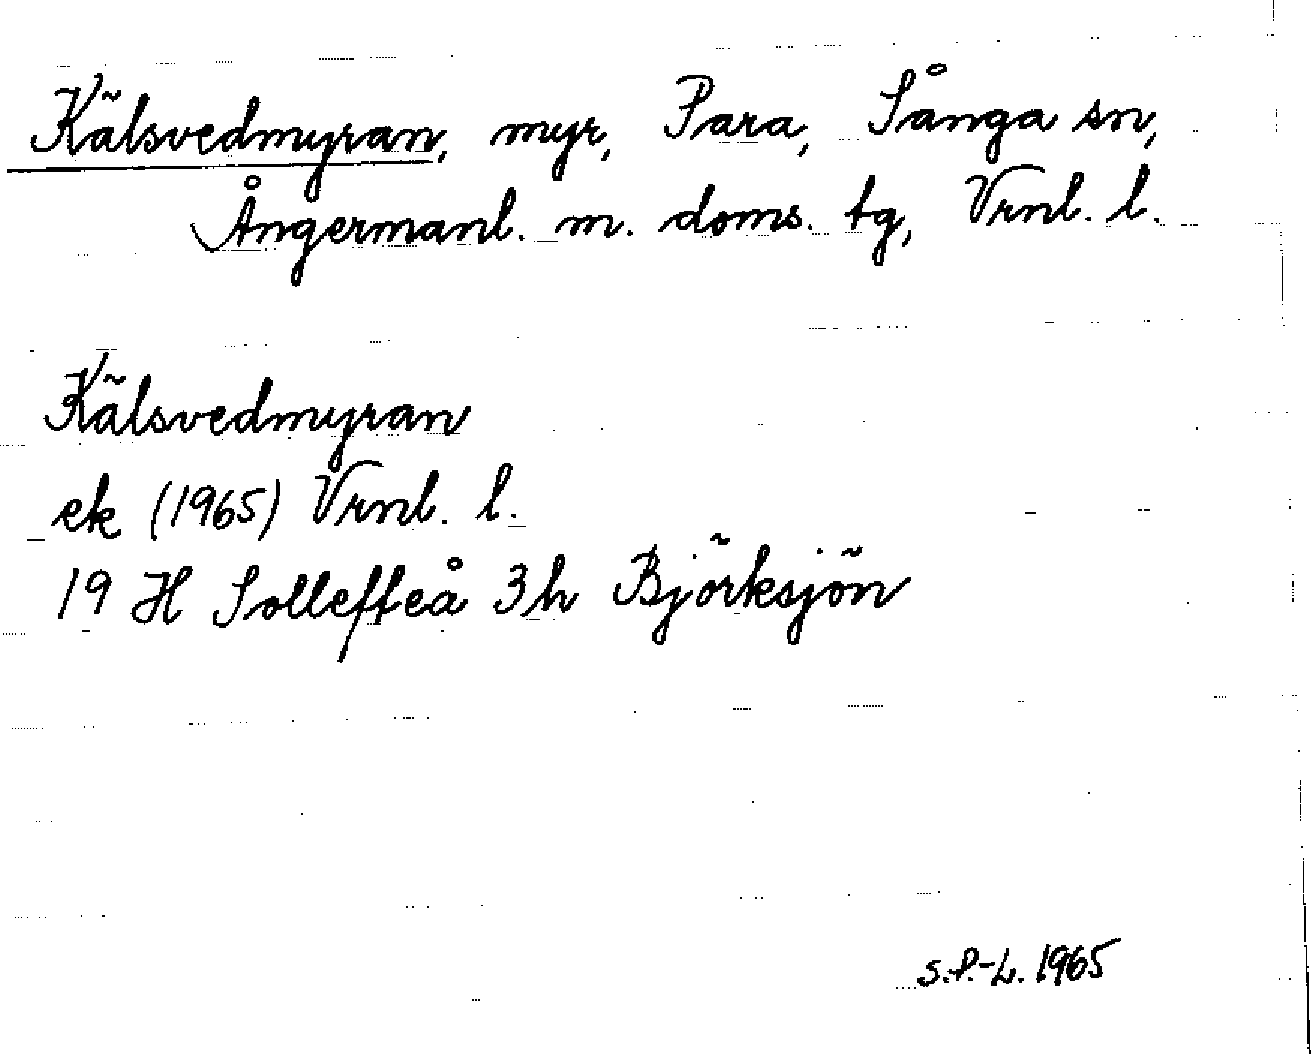 Kälsvedmyran, myr, Para, Sånga sn,
Ångermanl. m. doms. tg, Vrnl. l.
Kälsvedmyran
ek (1965) Vrnl. l.
19 H Sollefteå 3h Björksjön
S.P.-L. 1965